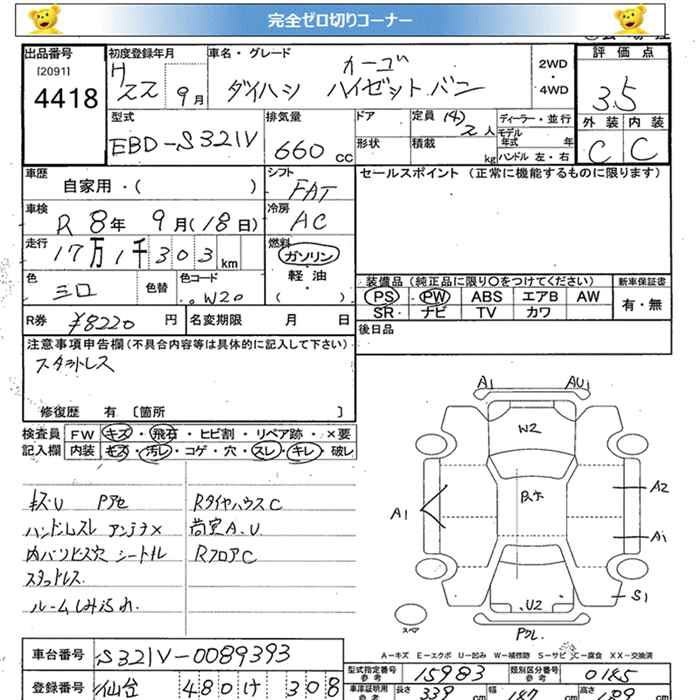 完全ゼロ切りコーナー
出品番号 初度登録年月 車名・グレード 評価点
[2091] H22 9月 ダイハシ カーゴ ハイゼット バン 2WD・4WD 3.5
4418
外装 内装
C C
型式 排気量 ドア 定員 (4) 2人 ディーラー・並行
EBD-S321V 660cc 形状 積載 kg モデル年式 年
ハンドル 左・右
車歴 シフト セールスポイント (正常に機能するものに限ります)
自家用・( ) FAT
車検 冷房
R 8年 9月(18日) AC
走行 燃料
17万1千303km ガソリン
軽油
・( )
色 色替 色コード
シロ W20
装備品 (純正品に限り〇をつけてください) 新車保証書
PS PW ABS エアB AW 有・無
SR ナビ TV カワ
R券 ¥8220 円 名変期限 月 日
後日品
注意事項申告欄(不具合内容等は具体的に記入して下さい)
スタットレス
修復歴 有 〔箇所 〕
検査員 FW キズ・飛石・ヒビ割・リペア跡・×要
記入欄 内装 キズ・汚レ・コゲ・穴・スレ・キレ・破レ
キズU Pアセ RタイヤハウスC
ハンドルスレ アンテナ× 荷室A.U
内バリビス穴 シートル RフロアC
スタットレス.
ルームしみ汚れ.
A1 AU1
W2
A2
A1
A1
S1
U2
Pクレ.
スペア
A-キズ E-エクボ U-凹み W-補修跡 S-サビ C-腐食 XX-交換済
車台番号 S321V-0089393
型式指定番号 参考 15983 類別区分番号 参考 0145
登録番号 仙台 480 け 308
車庫証明用 参考 長さ 339cm 幅 147 高さ